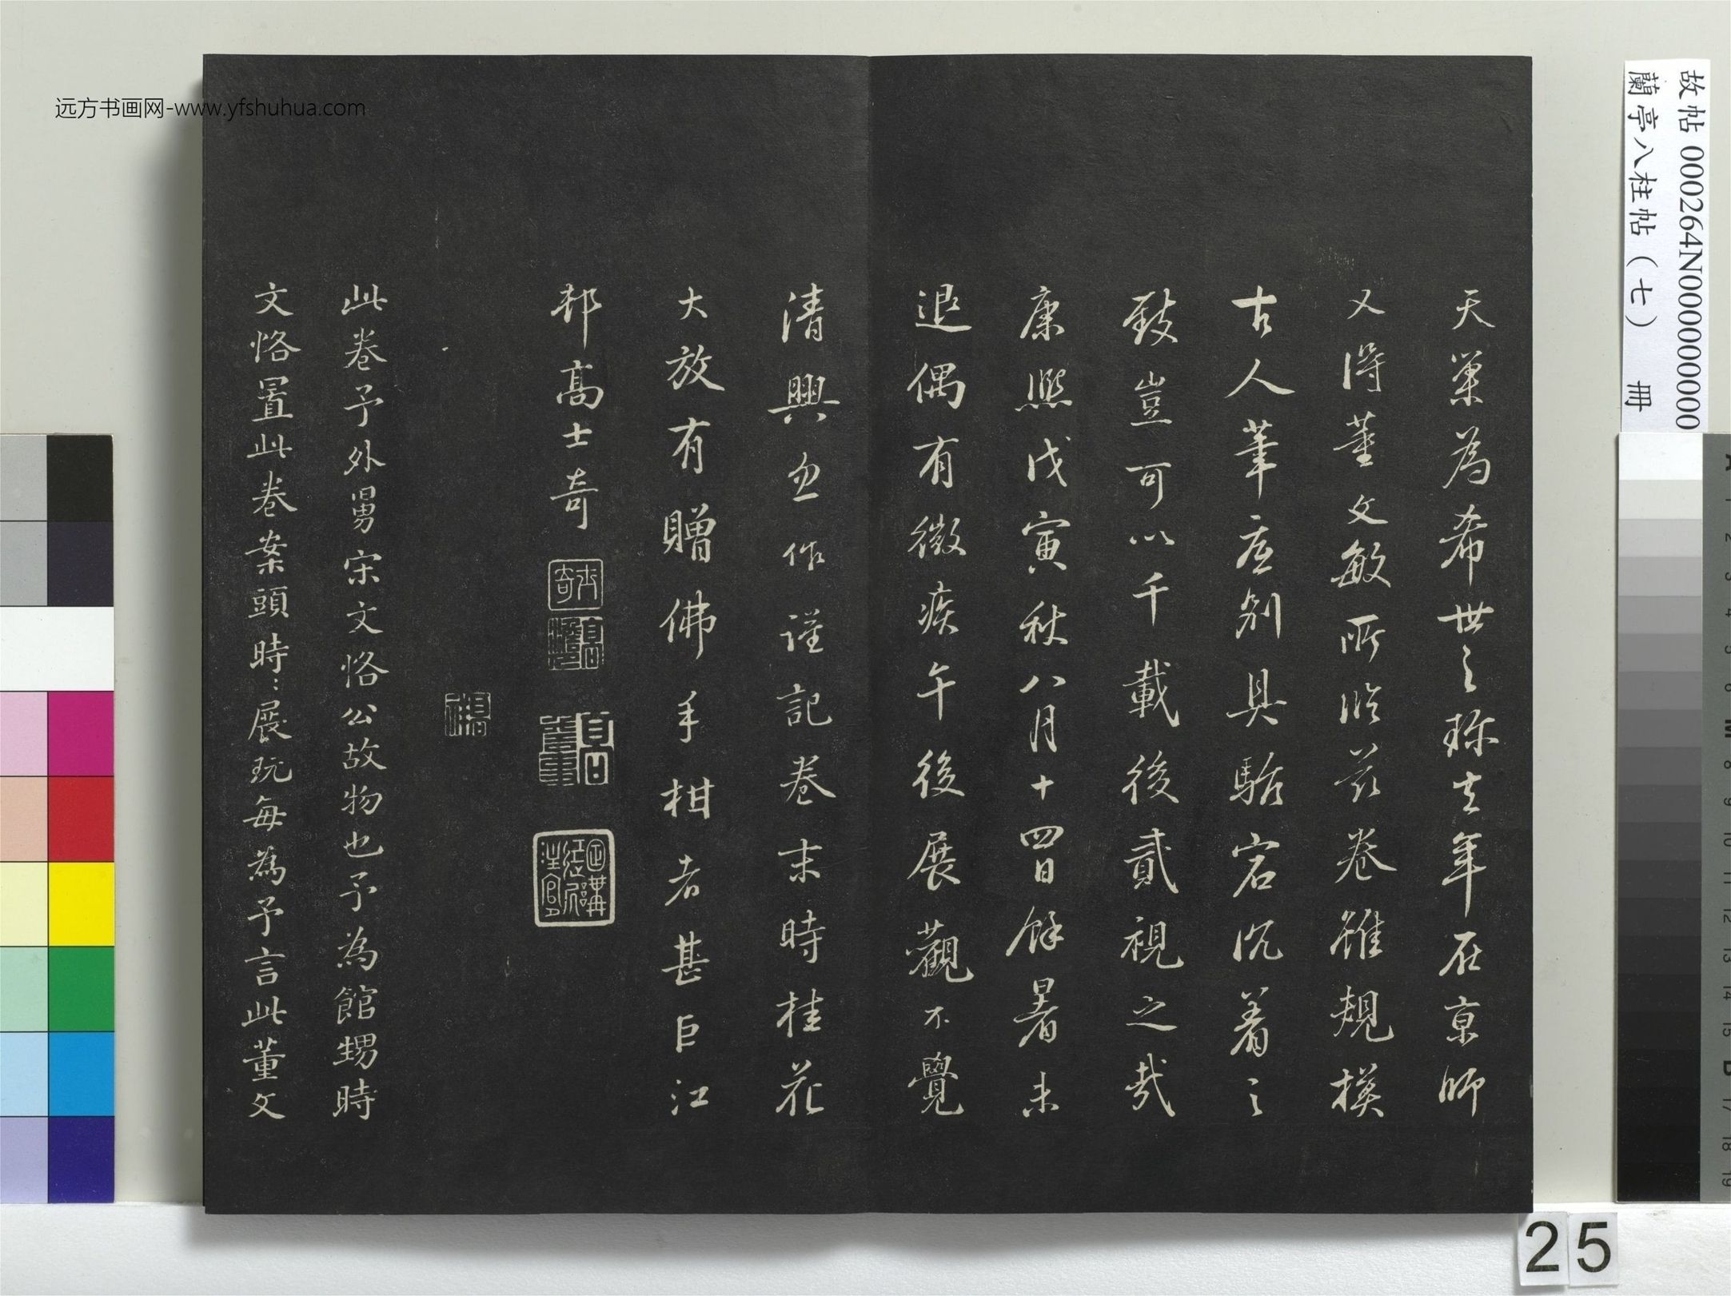 天巢為希世之珎去年在京師
又得董文敏所臨茲卷雖規模
古人筆意別具駘宕沉着之
致豈可以千載後貳視之哉
康熙戊寅秋八月十四日餘暑未
退偶有微疾午後展觀不覺
清興忽作謹記卷末時桂花
大放有贈佛手柑者甚巨江
邨高士奇
此卷予外舅宋文恪公故物也予為館甥時
文恪置此卷案頭時:展玩每為予言此董文
故帖 000264N000000000
蘭亭八柱帖(七) 冊
远方书画网-www.yfshuhua.com
25